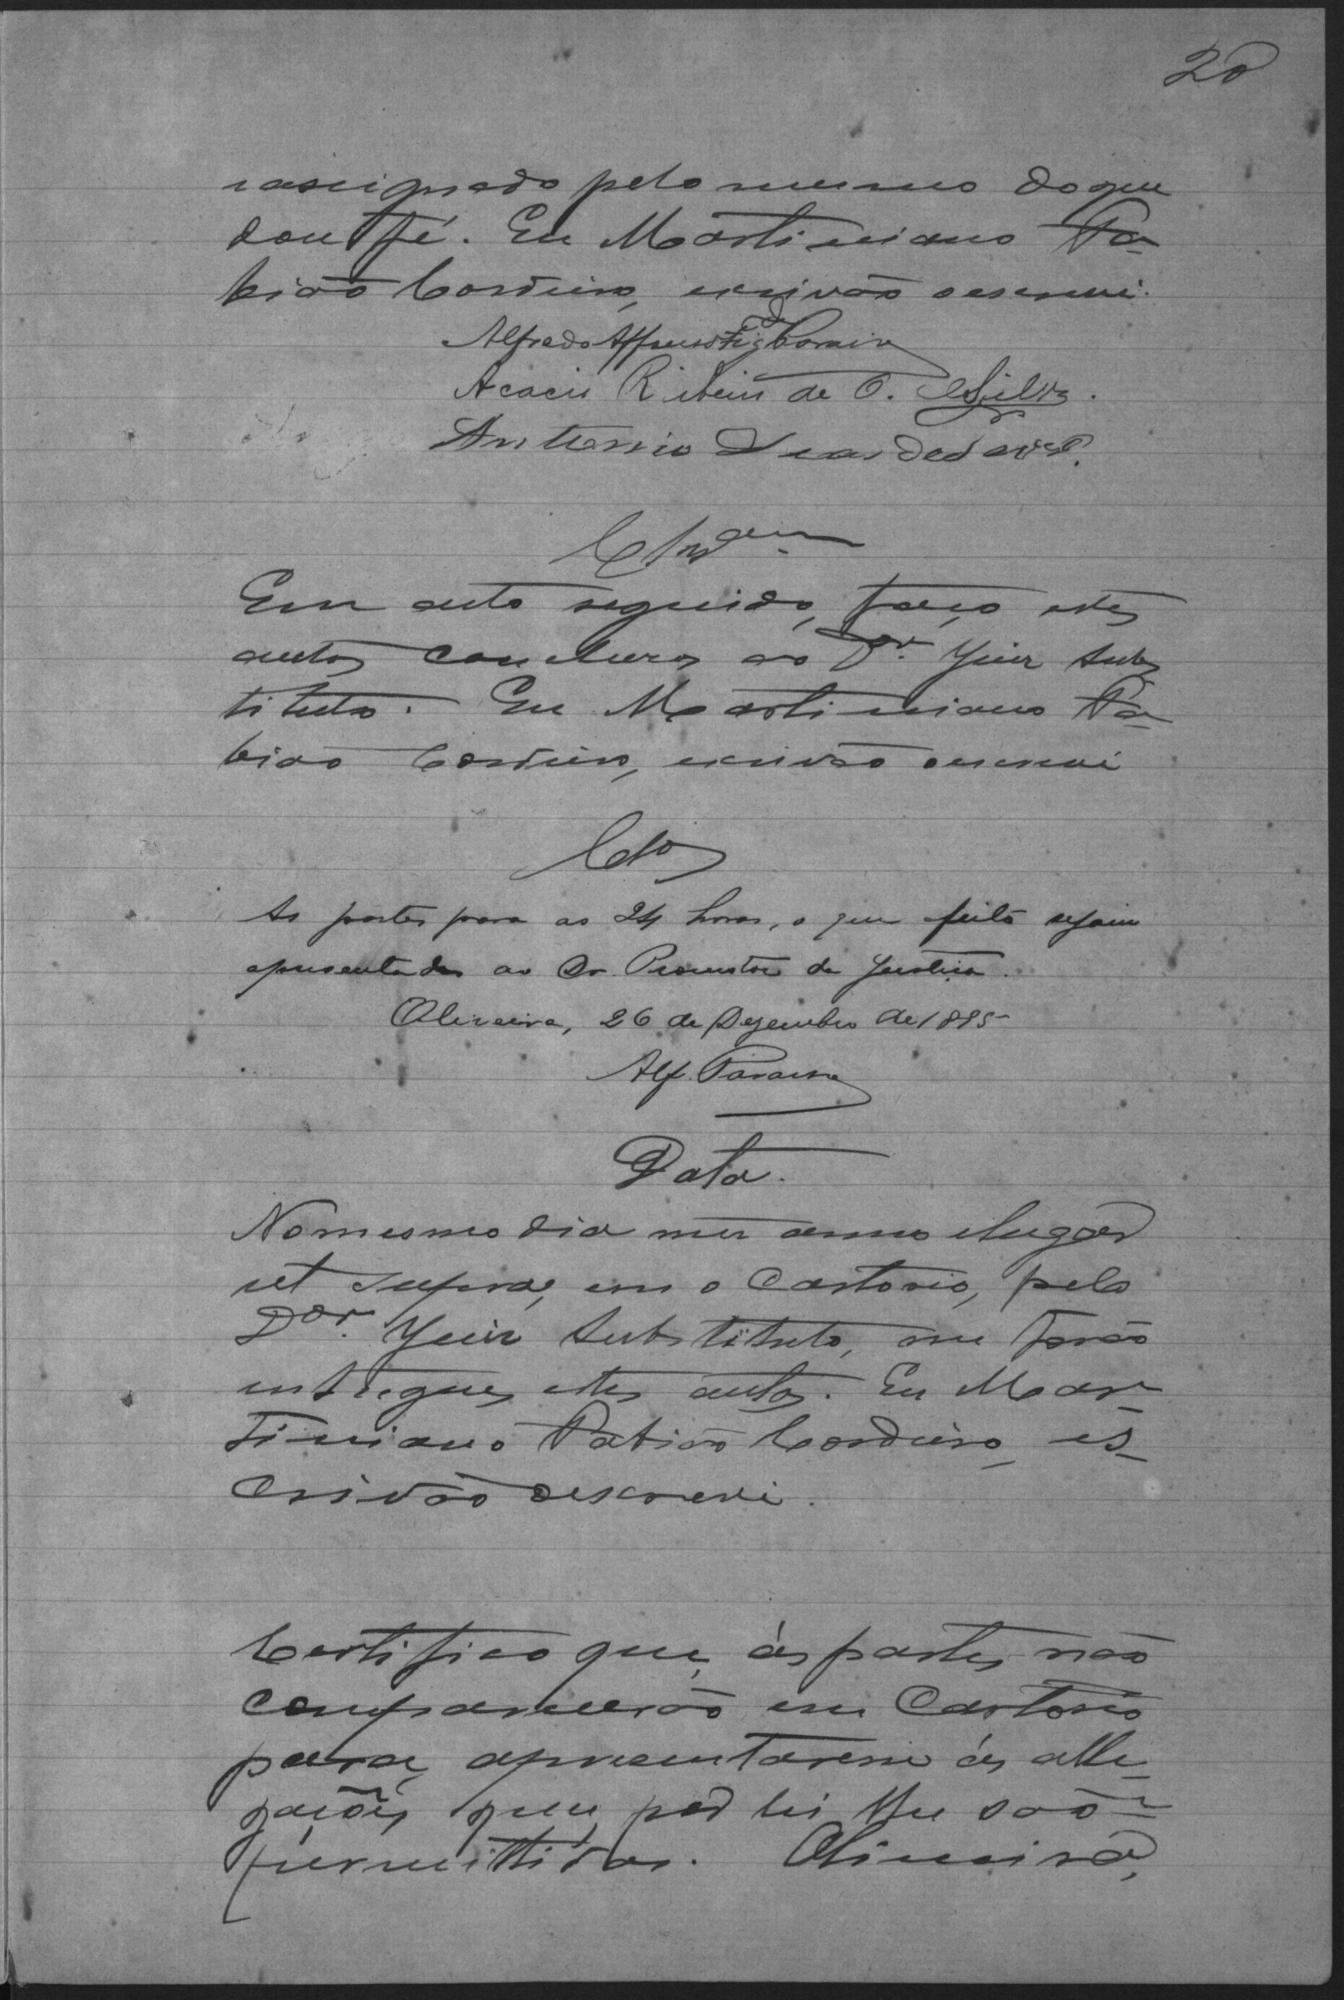 20
e assignado pelo mesmo do que
dou fé. Eu Martiniano Pa-
bião Cordeiro, escrivão o escrevi.
Alfredo Affonso de
Acacio Ribeiro de O. e Silva.
Antonio
Clsam
Em acto seguido, faço estes
autos conclusos ao Dor. Juiz Subs
tituto. Eu Martiniano Pa-
bião Cordeiro, escrivão o escrevi
Clos
As partes para as 24 horas, o que feito sejam
apresentados ao Dr. Promotor da Justiça.
Oliveira, 26 de Dezembro de 1895
Alf. Paraiso
Data.
No mesmo dia mez anno e lugar
ut supra, em o Cartorio, pelo
Dor. Juiz Substituto, me forão
entregues estes autos. Eu Mar-
tiniano Pabião Cordeiro, es-
crivão o escrevi.
Certifico que, ás partes não
comparecerão em Cartorio
para, apresentarem ás alle-
gações que, por lei lhe são
permittidas. Oliveira,